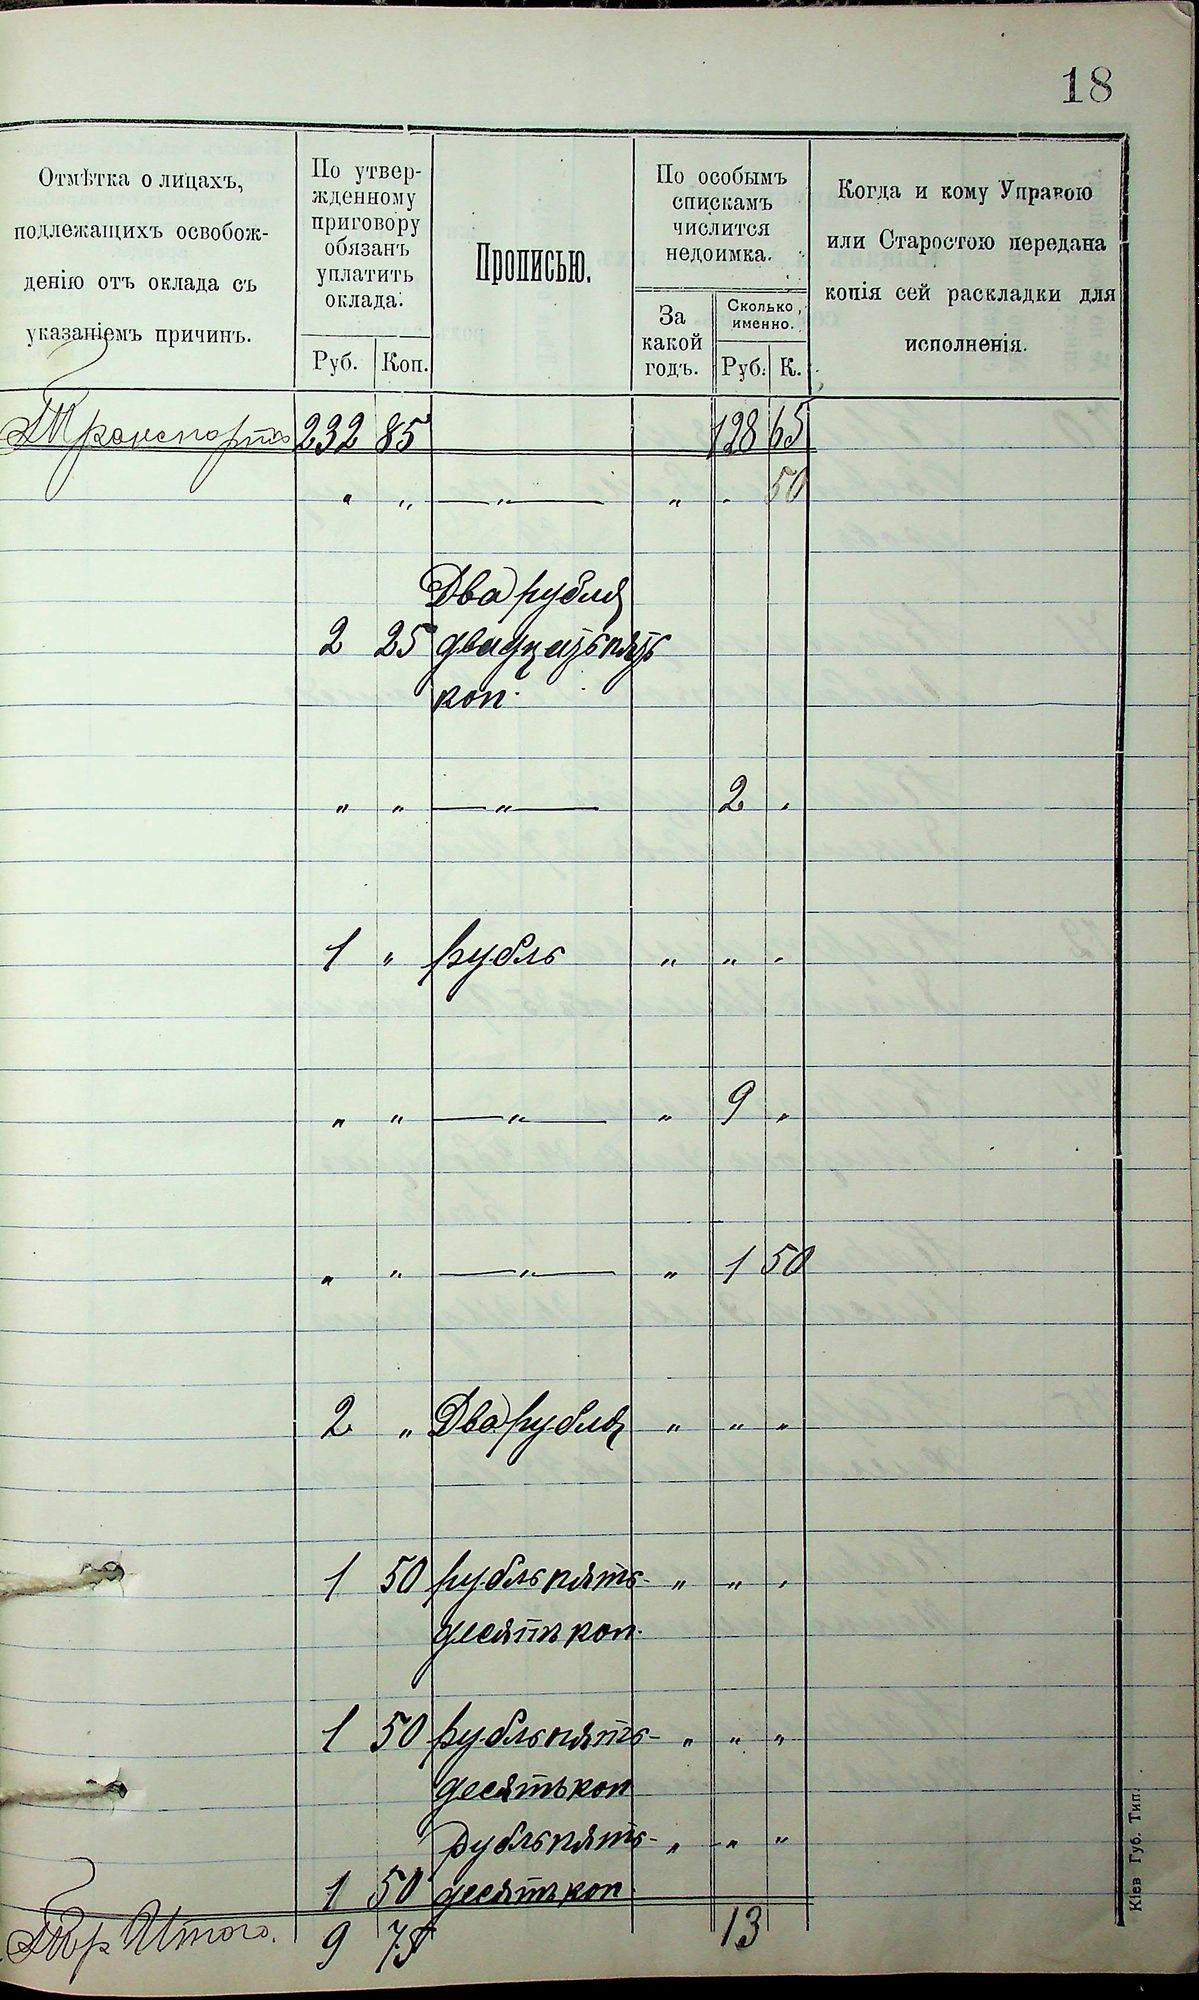 18
Отмѣтка о лицахъ,
подлежащихъ освобож-
денію отъ оклада съ
указаніемъ причинъ.
По утвер-
жденному
приговору
обязанъ
уплатить
оклада:
Руб. Коп.
Прописью.
По особымъ
спискамъ
числится
недоимка.
За
какой
годъ.
Сколько
именно.
Руб. К.
Когда и кому Управою
или Старостою передана
копія сей раскладки для
исполненія.
Транспортъ 232 85 128 65
" " — " — " " 50
Два рубля
2 25 двадцать пять
коп.
" " — " — 2 "
1 " рубль " " "
" " — " — " 9 "
" " — " — " 1 50
2 " Два рубля " " "
1 50 рубль пять- " " "
десятъ коп.
1 50 рубль пять- " " "
десятъ коп
Рубль пять- " " "
1 50 десятъ коп
Итого. 9 75 13
Кіев Губ. Тип.